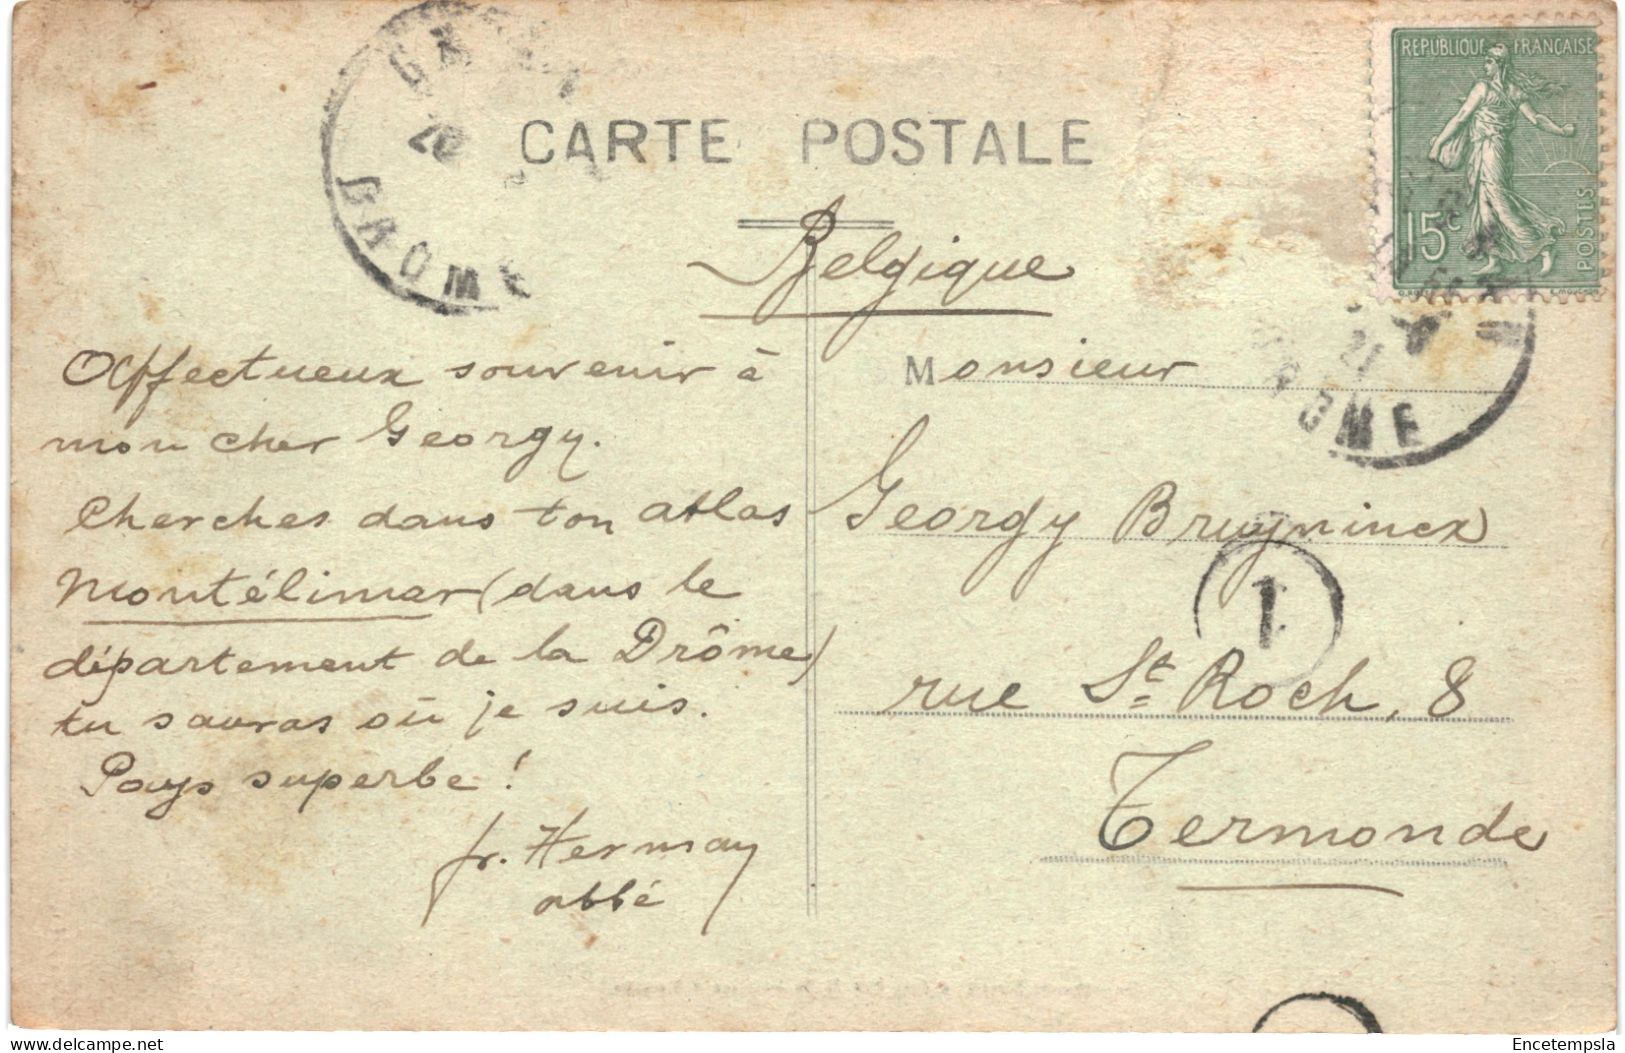 CARTE POSTALE
REPUBLIQUE FRANÇAISE
15c
POSTES
DROME
20
Belgique
Affectueux souvenir à
mon cher Georgy.
Cherches dans ton atlas
Montélimar (dans le
département de la Drôme)
tu sauras où je suis.
Pays superbe !
fr. Herman
abbé
Monsieur
Georgy Bruyninckx
rue St Roch, 8
Termonde
1
21
DROME
Encetempsla